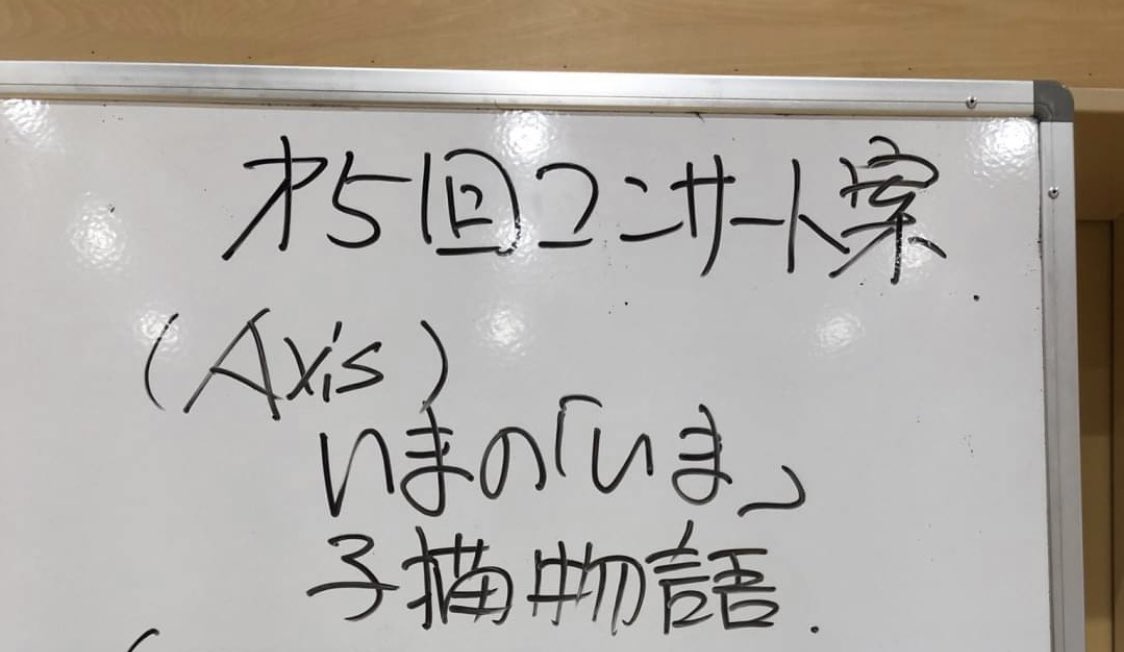 才5回コンサート案.
(Axis)
いまの「いま」
子描物語.